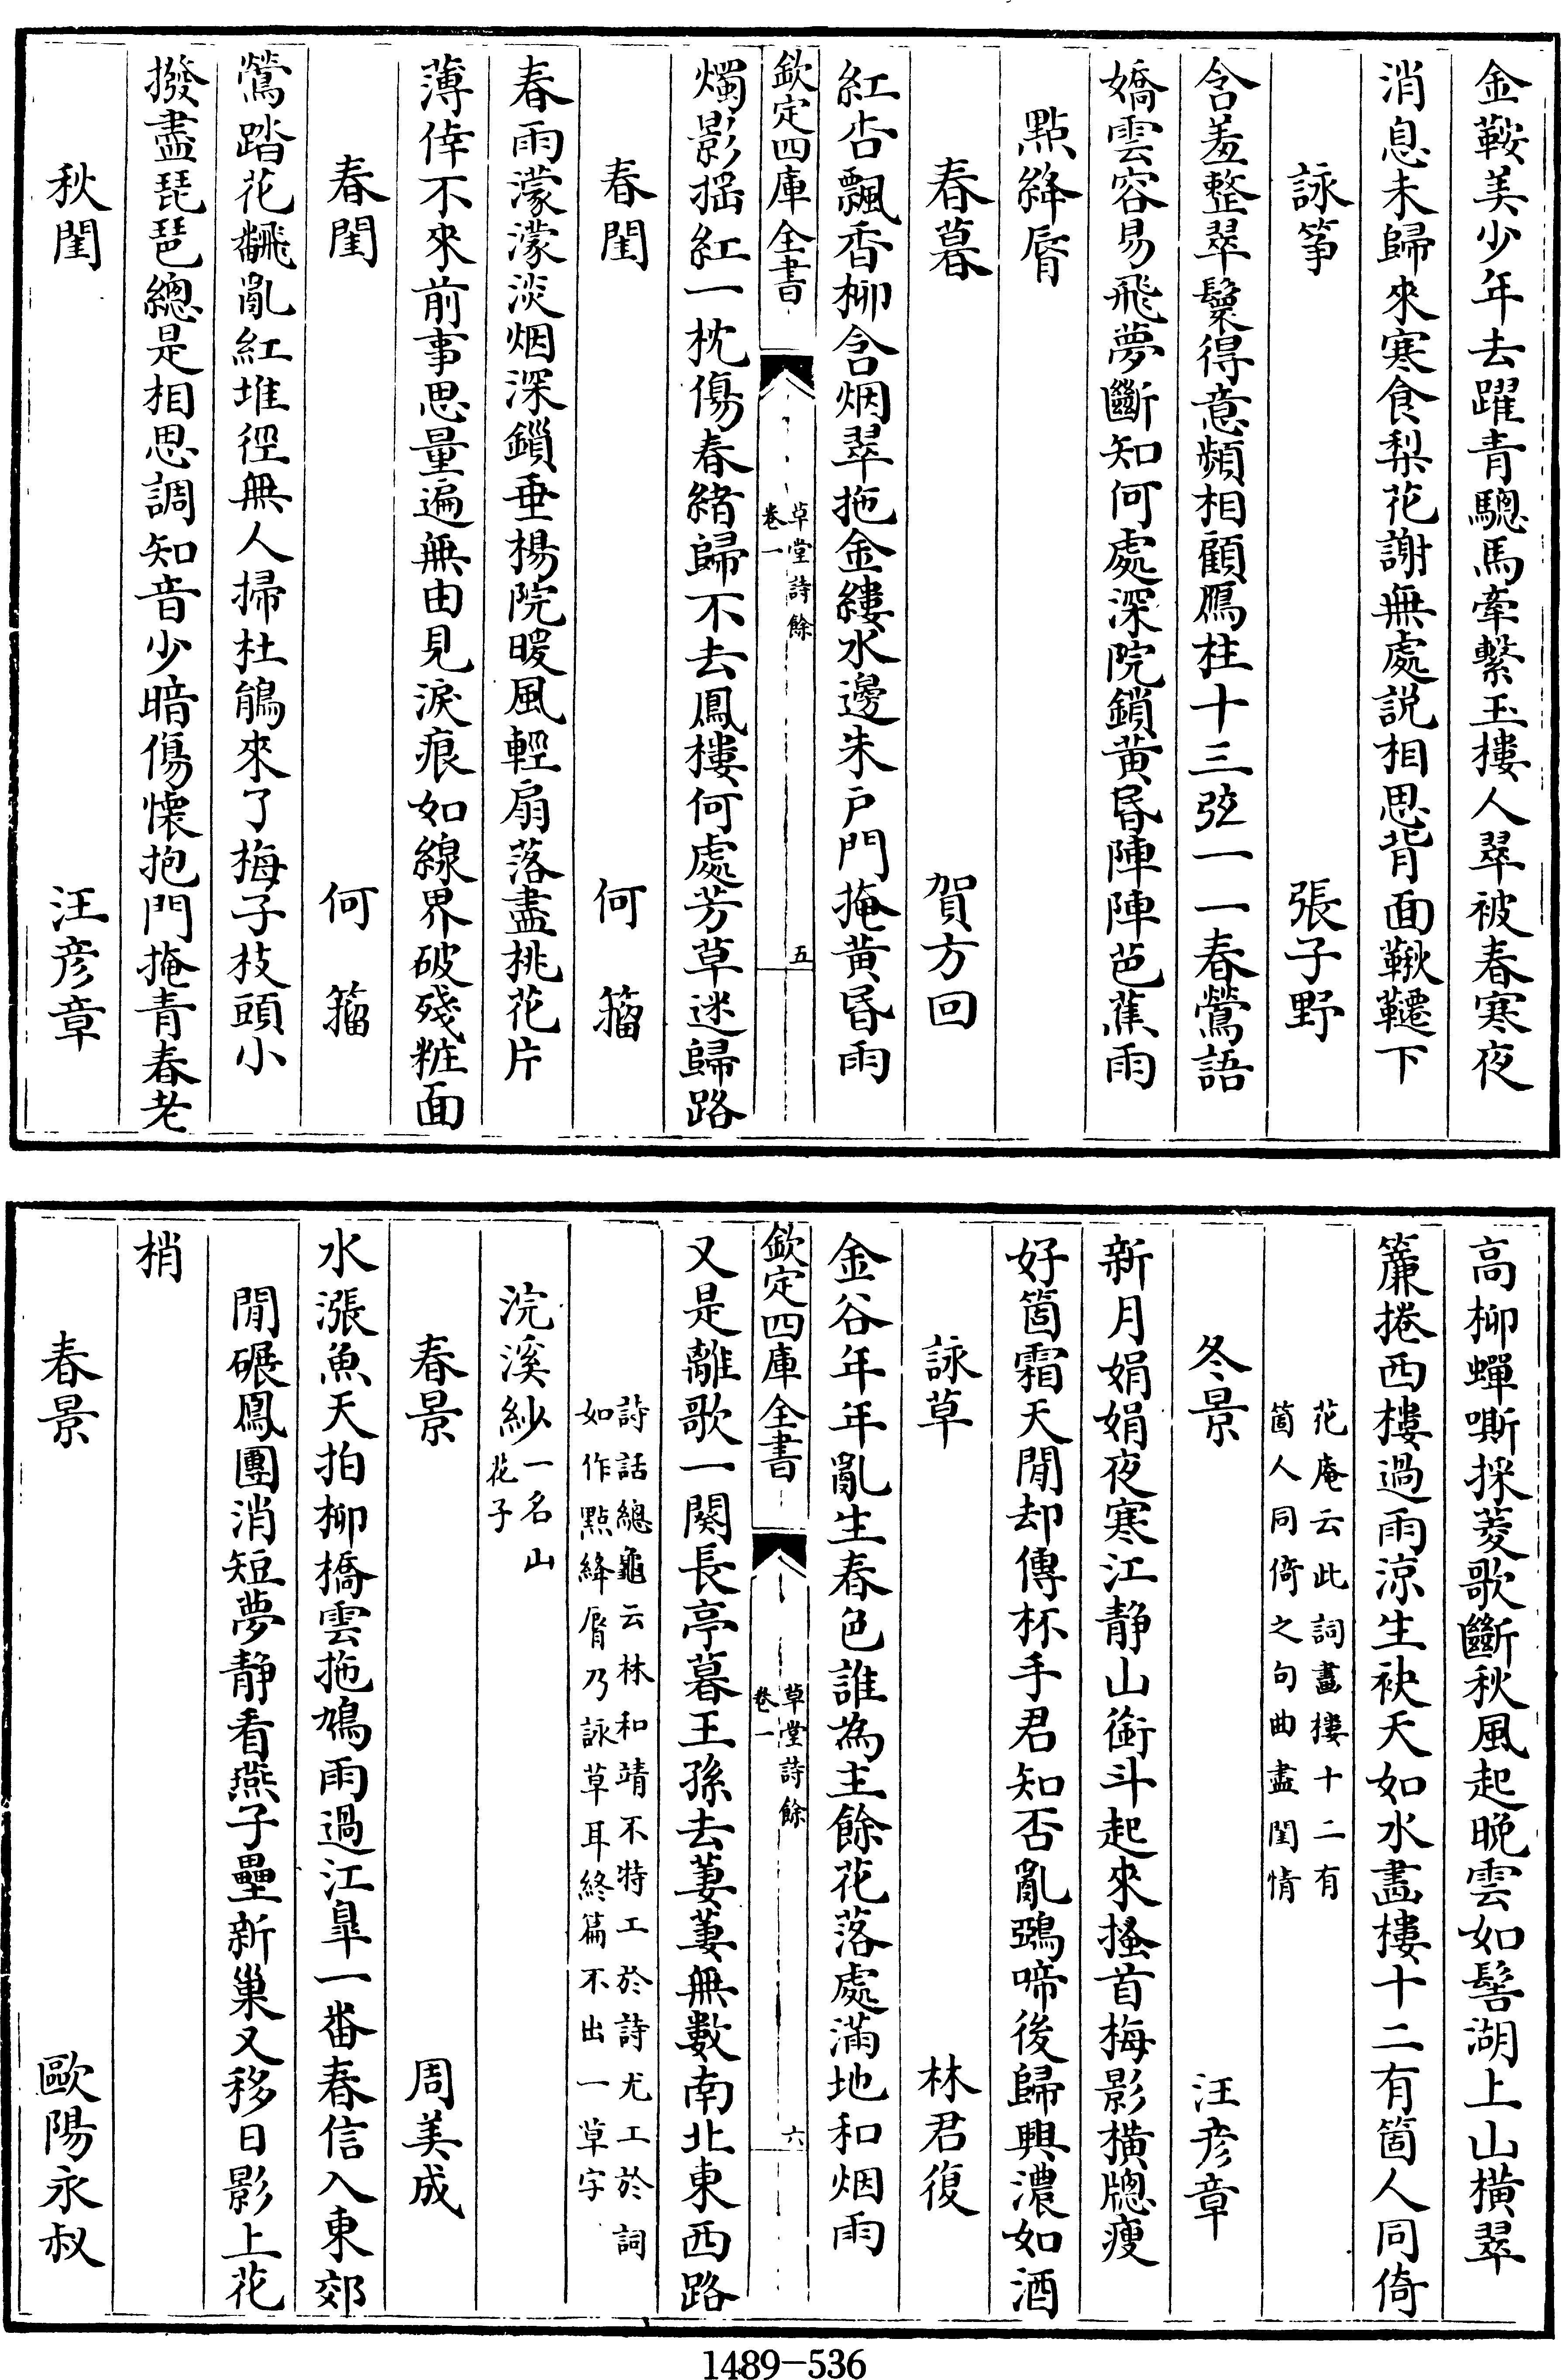 金鞍美少年去躍青驄馬牽繫玉樓人翠被春寒夜
消息未歸來寒食梨花謝無處説相思背面鞦韆下
詠筝　張子野
含羞整翠鬟得意頻相顧鴈柱十三弦一一春鶯語
嬌雲容易飛夢斷知何處深院鎖黄昏陣陣芭蕉雨
點絳脣
春暮　賀方回
紅杏飄香柳含烟翠拖金縷水邊朱戸門掩黄昏雨
欽定四庫全書
草堂詩餘
卷一
五
燭影摇紅一枕傷春緒歸不去鳳樓何處芳草迷歸路
春閨　何籀
春雨濛濛淡烟深鎖垂楊院暖風輕扇落盡桃花片
薄倖不來前事思量遍無由見淚痕如線界破殘粧面
春閨　何籀
鶯踏花翻亂紅堆徑無人掃杜鵑來了梅子枝頭小
撥盡琵琶總是相思調知音少暗傷懷抱門掩青春老
秋閨　汪彦章
高柳蟬嘶採菱歌斷秋風起晚雲如髻湖上山横翠
簾捲西樓過雨涼生袂天如水畵樓十二有箇人同倚
花庵云此詞畵樓十二有
箇人同倚之句曲盡閨情
冬景　汪彦章
新月娟娟夜寒江静山銜斗起來搔首梅影横牕瘦
好箇霜天閒却傳杯手君知否亂鵶啼後歸興濃如酒
詠草　林君復
金谷年年亂生春色誰為主餘花落處滿地和烟雨
欽定四庫全書
草堂詩餘
卷一
六
又是離歌一闋長亭暮王孫去萋萋無數南北東西路
詩話總龜云林和靖不特工於詩尤工於詞
如作點絳脣乃詠草耳終篇不出一草字
浣溪紗一名山
花子
春景　周美成
水漲魚天拍柳橋雲拖鳩雨過江臯一番春信入東郊
閒碾鳳團消短夢静看燕子壘新巢又移日影上花
梢
春景　歐陽永叔
1489-536